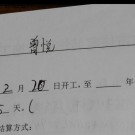 曾悦
2月20日开工，至 年
天、（
结算方式：